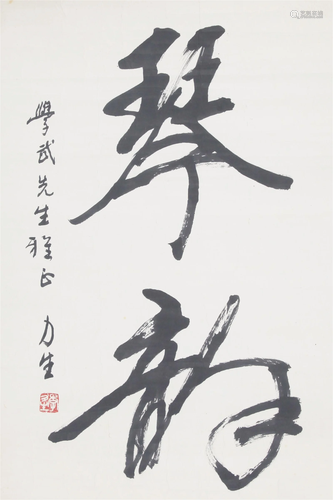 琴
韵
學武先生雅正
力生